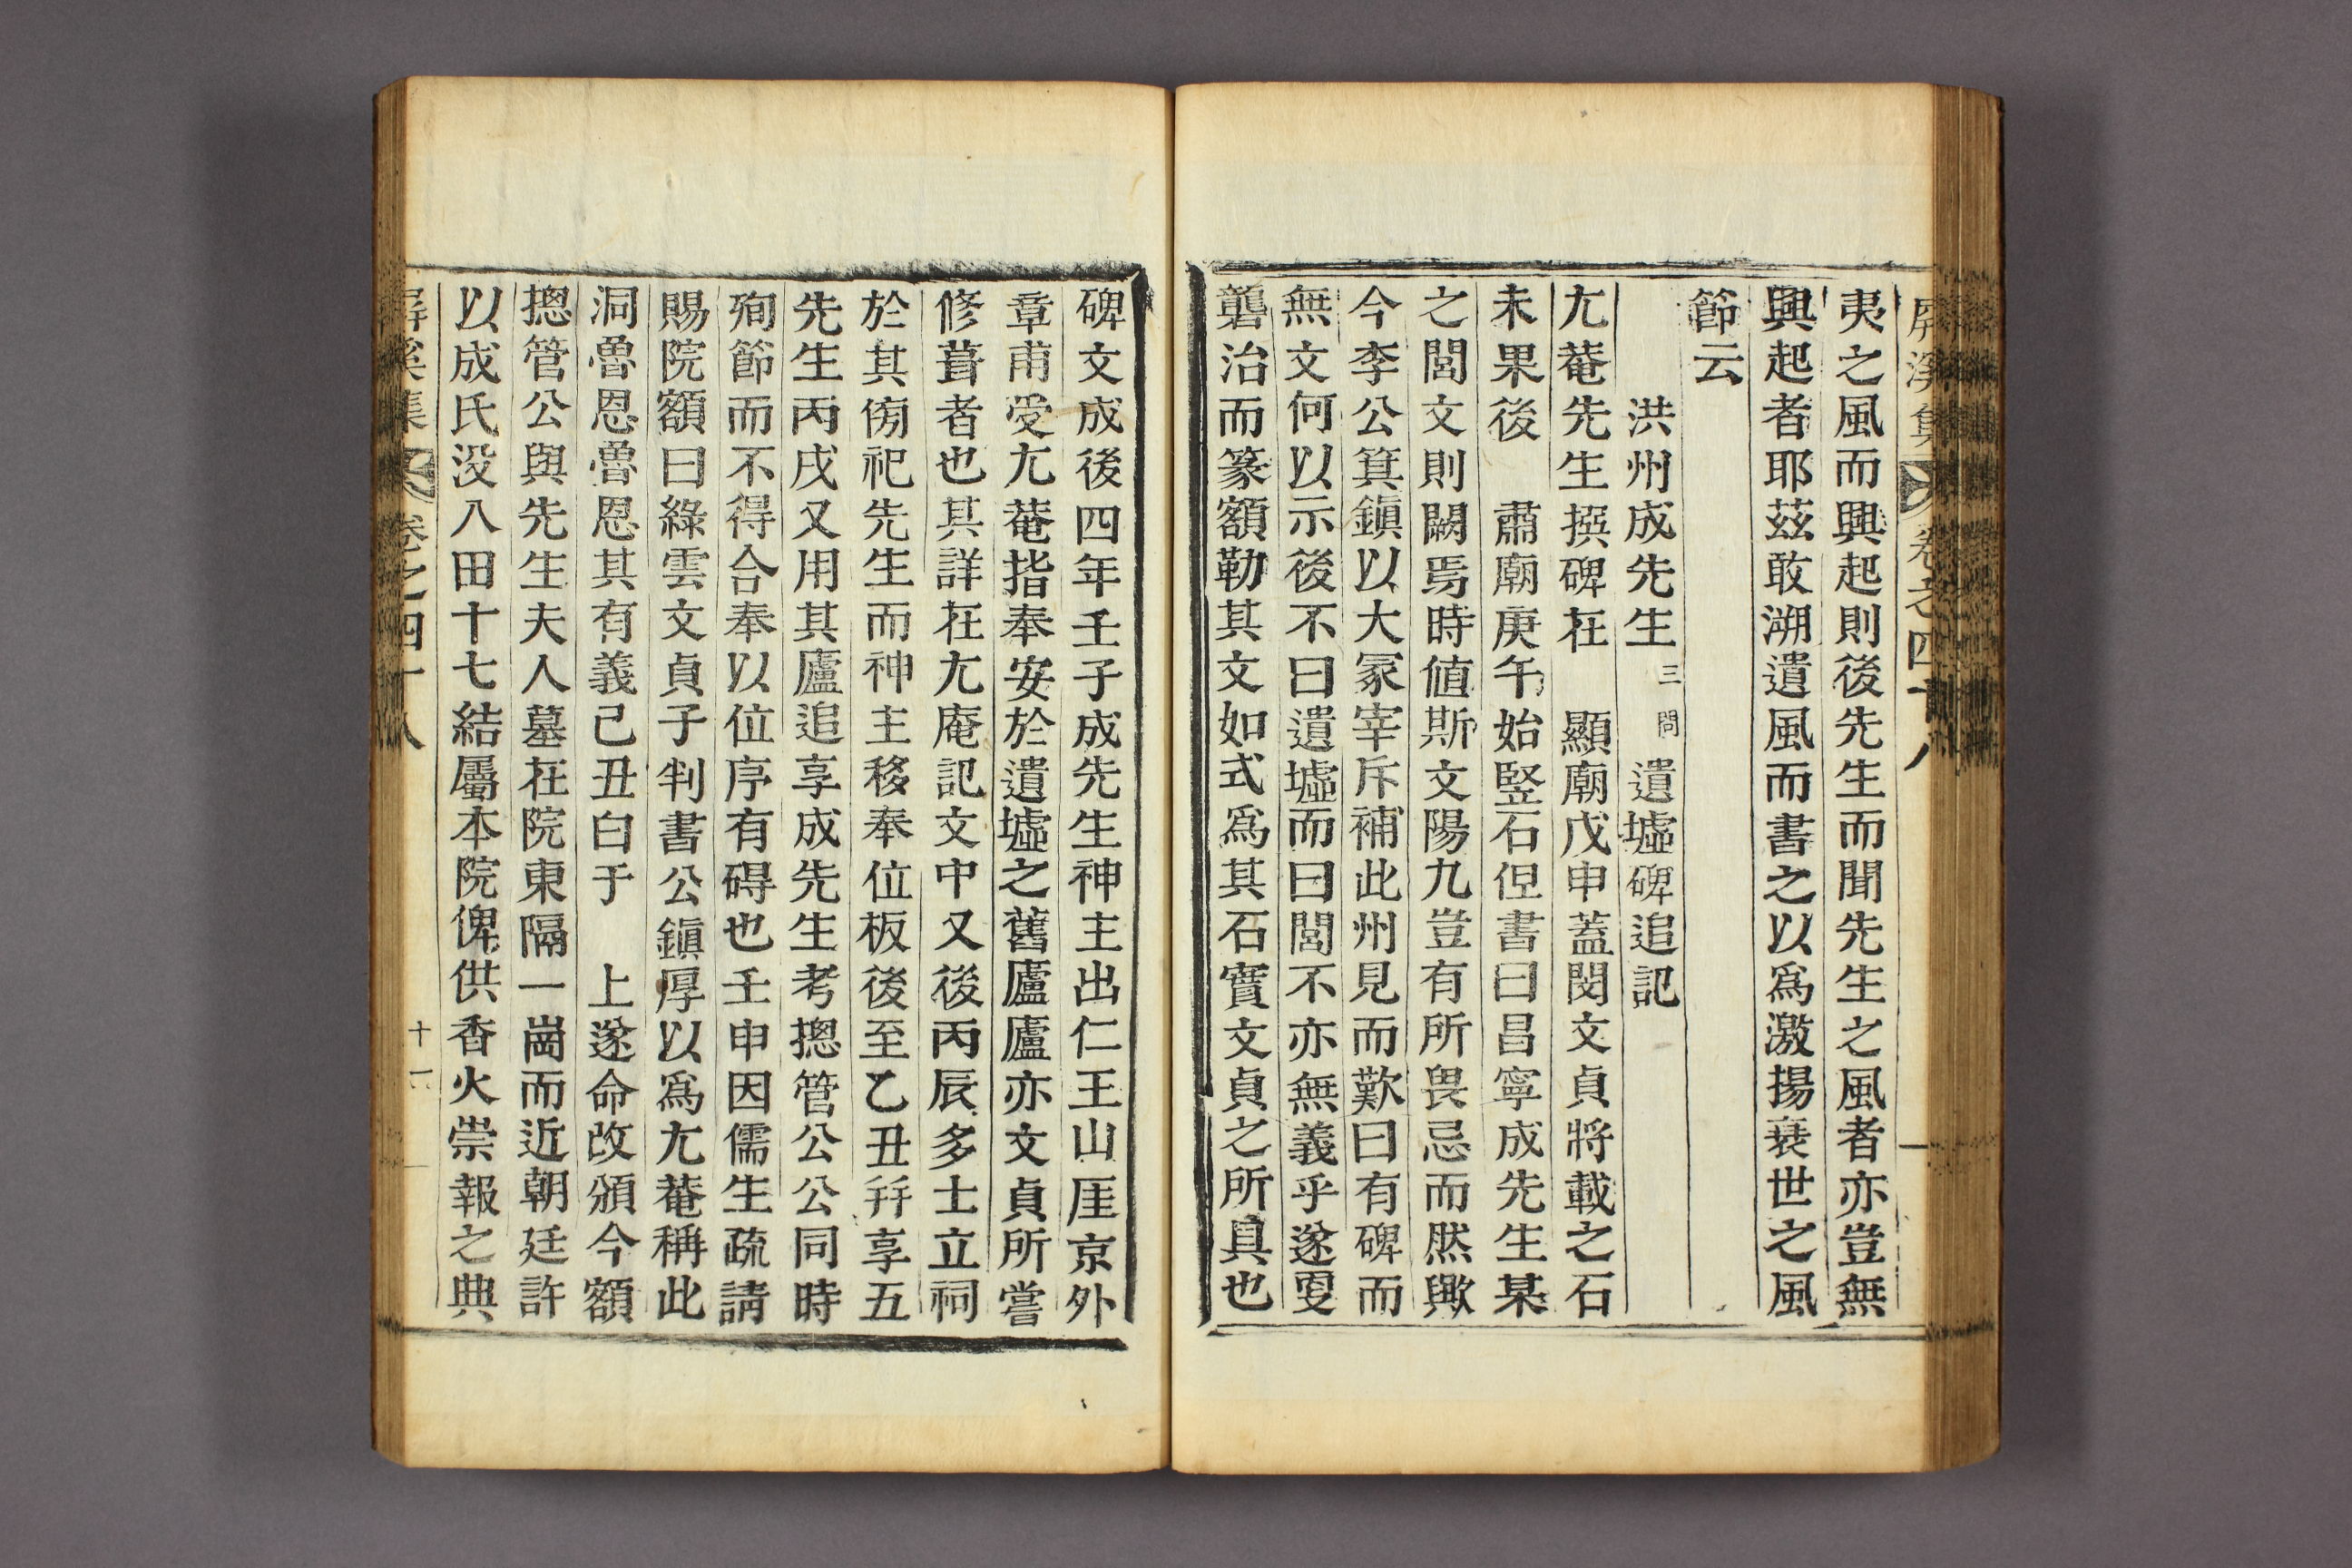 屛溪集 卷之四十八
夷之風而興起則後先生而聞先生之風者亦豈無
興起者耶玆敢溯遺風而書之以爲激揚衰世之風
節云
洪州成先生三問遺墟碑追記
尤菴先生撰碑在 顯廟戊申蓋閔文貞將載之石
未果後 肅廟庚午始竪石但書曰昌寧成先生某
之閭文則闕焉時値斯文陽九豈有所畏忌而然歟
今李公箕鎭以大冢宰斥補此州見而歎曰有碑而
無文何以示後不曰遺墟而曰閭不亦無義乎遂更
礱治而篆額勒其文如式爲其石實文貞之所具也
碑文成後四年壬子成先生神主出仁王山厓京外
章甫受尤菴指奉安於遺墟之舊廬廬亦文貞所嘗
修葺者也其詳在尤庵記文中又後丙辰多士立祠
於其傍祀先生而神主移奉位板後至乙丑幷享五
先生丙戌又用其廬追享成先生考摠管公公同時
殉節而不得合奉以位序有碍也壬申因儒生疏請
賜院額曰綠雲文貞子判書公鎭厚以爲尤菴稱此
洞魯恩魯恩其有義己丑白于 上遂命改頒今額
摠管公與先生夫人墓在院東隔一崗而近朝廷許
以成氏没入田十七結屬本院俾供香火崇報之典
屛溪集 卷之四十八 十一